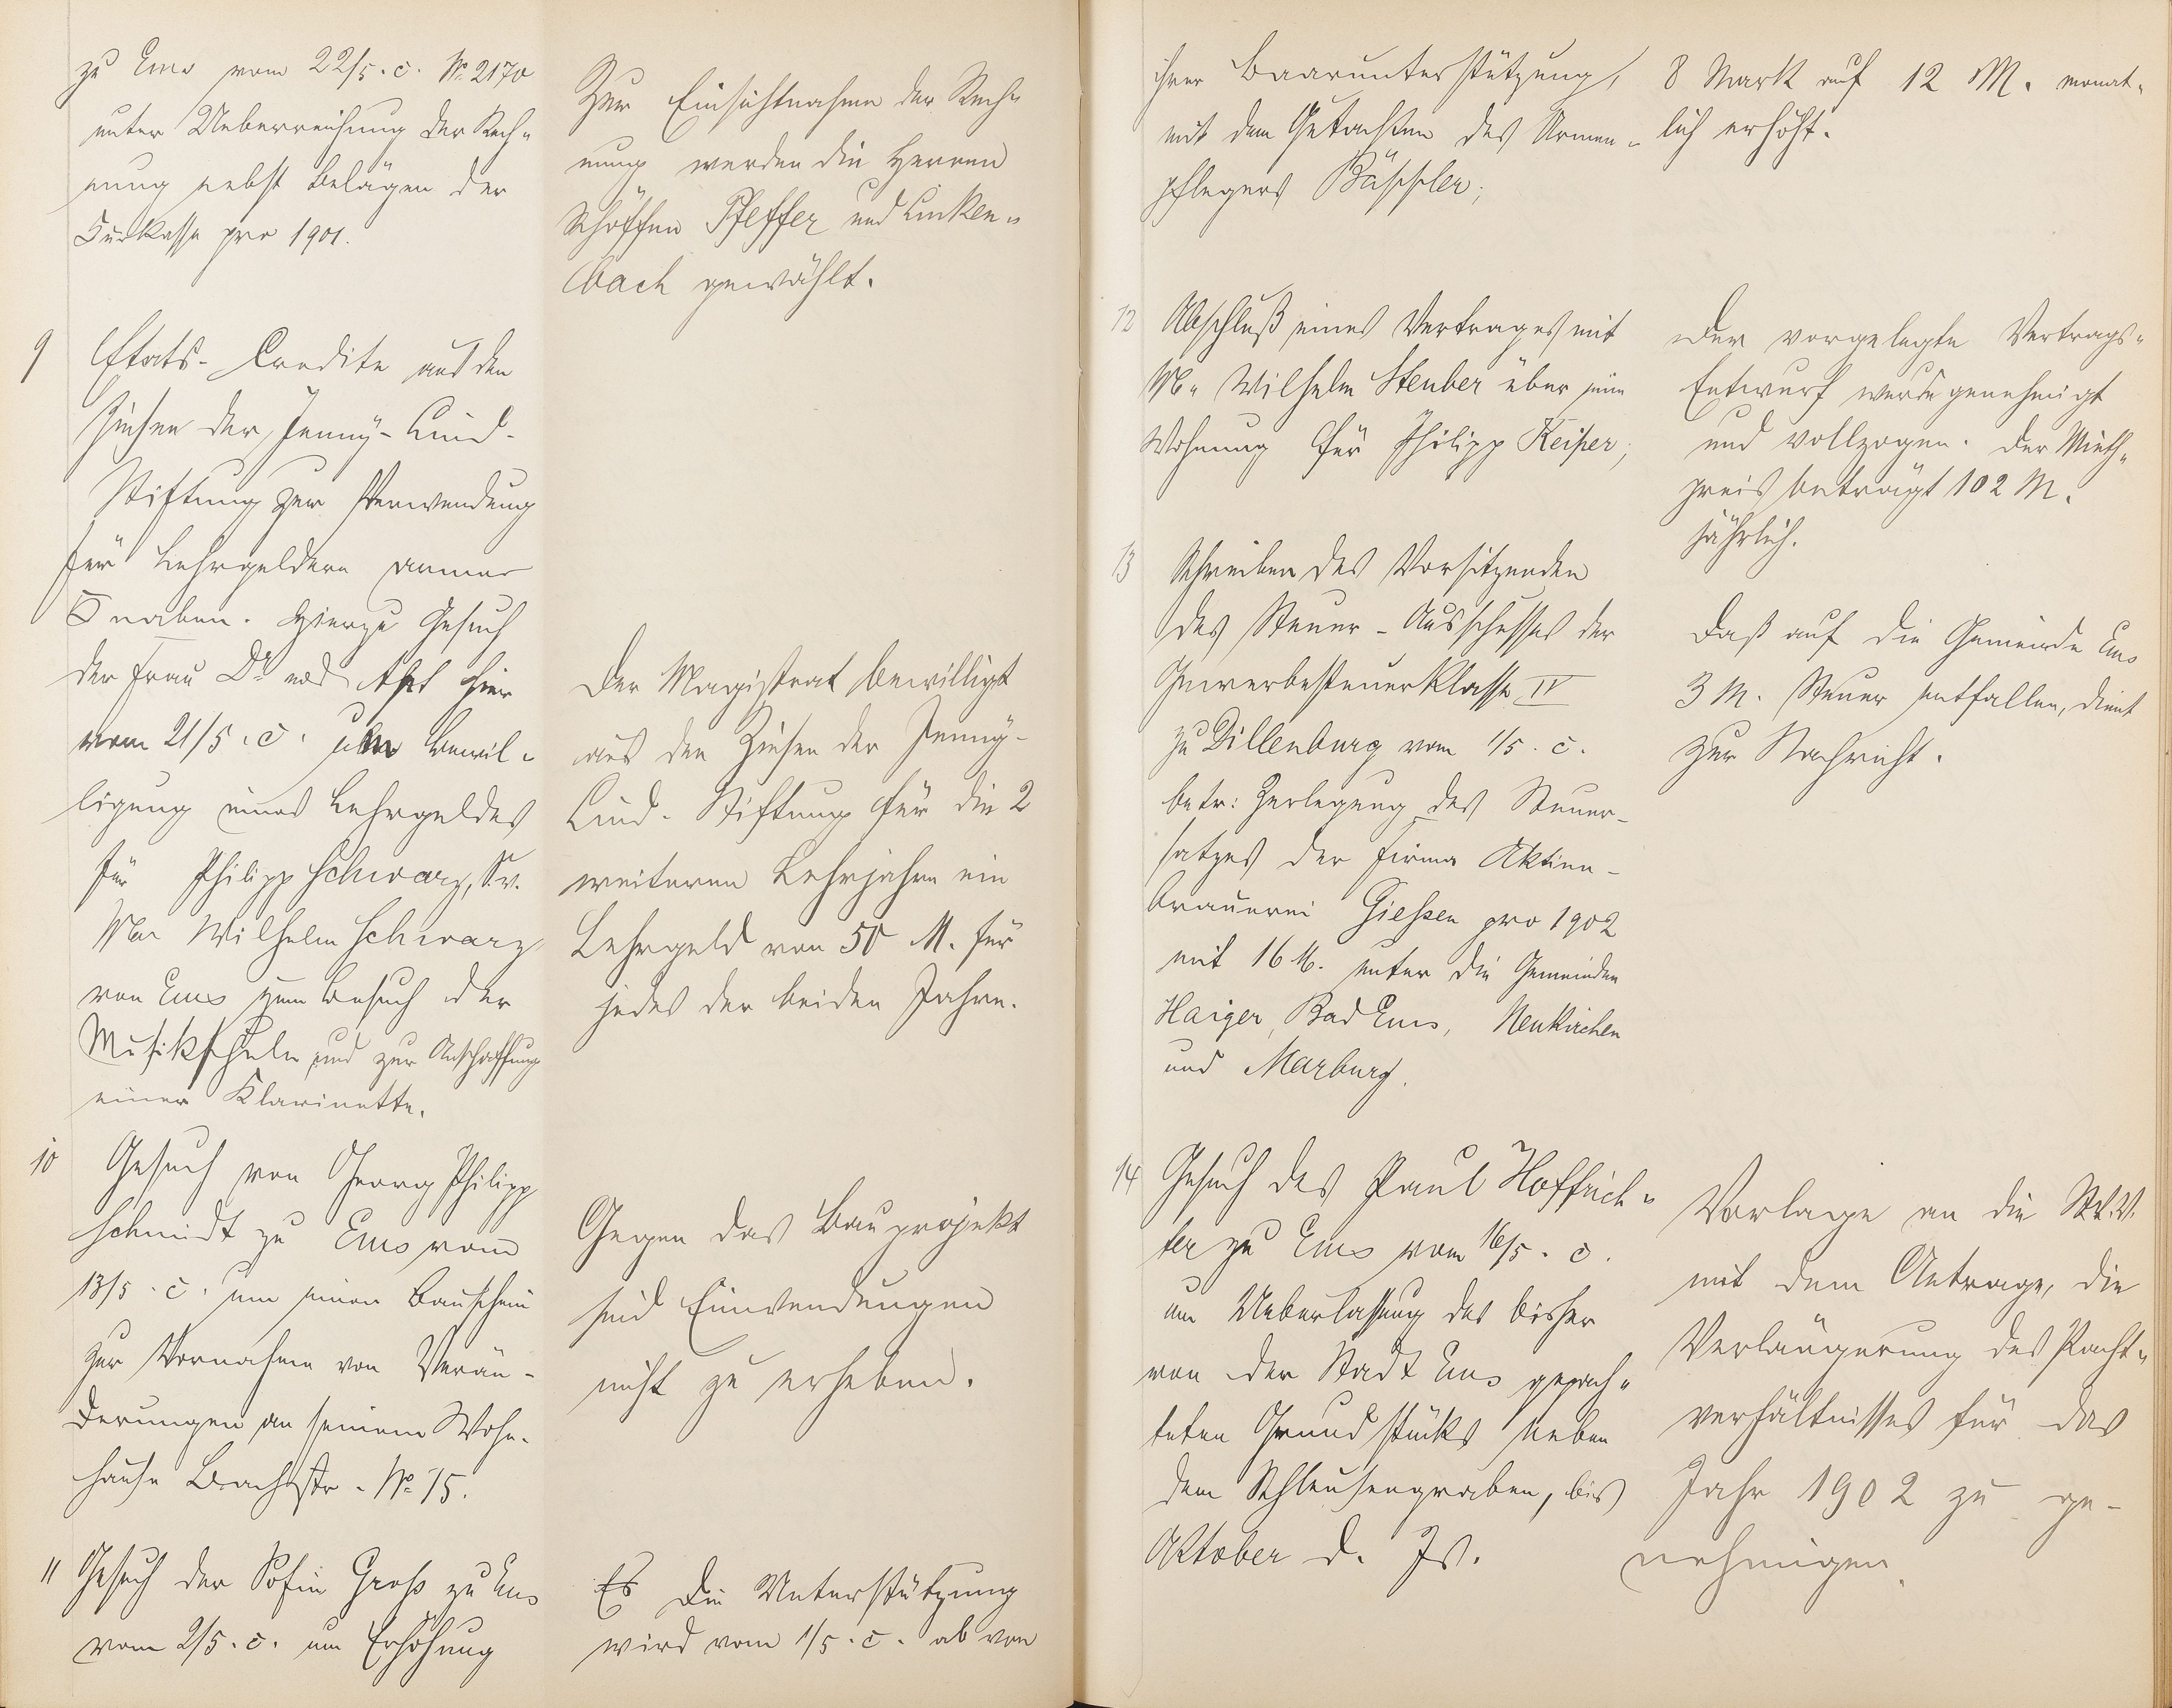 zu Ems vom 22/5. c. № 2170
unter Ueberreichung der Rech„
nung nebst Belägen der
Kurkasse pro 1901.
Zur Einsichtnahme der Rech„
nung werden die Herren
Schöffen Pfeffer und Linken„
bach gewählt.
9
Etats-Credite aus den
Zinsen der Jenny-Lind-
Stiftung zur Verwendung
für Lehrgeldern armer
Knaben. Hierzu Gesuch
der Frau Dr. hier
vom 21/5. c. um Bewil„
ligung eines Lehrgeldes
für Philipp Schwarz, S. v.
Wilhelm Schwarz
von Ems zum Besuch der
Musikschule und zur Anschaffung
einer Klarinette.
Der Magistrat bewilligt
aus den Zinsen der Jenny-
Lind-Stiftung für die 2
weiteren Lehrjahre ein
Lehrgeld von 50 M. für
jedes der beiden Jahre.
10
Gesuch von Georg Philipp
Schmidt zu Ems vom
13/5. c. um einen Bauschein
zur Vornahme von Verän-
derungen an seinem Wohn-
hause Bachstr. № 15.
Gegen das Bauprojekt
sind Einwendungen
nicht zu erheben.
11
Gesuch der Sofie Groß zu Ems
vom 2/5. c. um Erhöhung
Es Die Unterstützung
wird vom 1/5. c. ab von
ihrer Baarunterstützung,
mit dem Gutachten des Armen„
pflegers Bäppler;
8 Mark auf 12 M. monat„
lich erhöht.
12
Abschluß eines Vertrages mit
Wilhelm Steuber über eine
Wohnung für Philipp Keiper;
Der vorgelegte Vertrags„
Entwurf wurde genehmigt
und vollzogen. Der Mieth„
preis beträgt 102 M.
jährlich.
13
Schreiben des Vorsitzenden
des Steuer-Ausschusses der
Gewerbesteuerklasse IV
zu Dillenburg vom 1/5. c.
betr: Zerlegung des Steuer-
satzes der Firma Aktien-
brauerei Giessen pro 1902
mit 16 M. unter die Gemeinden
Haiger, Bad Ems, Neukirchen
und Marburg.
Daß auf die Gemeinde Ems
3 M. Steuer entfallen, dient
zur Nachricht.
14
Gesuch des Paul Hoffrich„
ter zu Ems vom 16/5. c.
um Ueberlassung des bisher
von der Stadt Ems gepach„
teten Grundstücks neben
dem Schleusengraben, bis
Oktober d. Js.
Vorlage an die St. V. V.
mit dem Antrage, die
Verlängerung des Pacht„
verhältnisses für das
Jahr 1902 zu ge-
nehmigen.